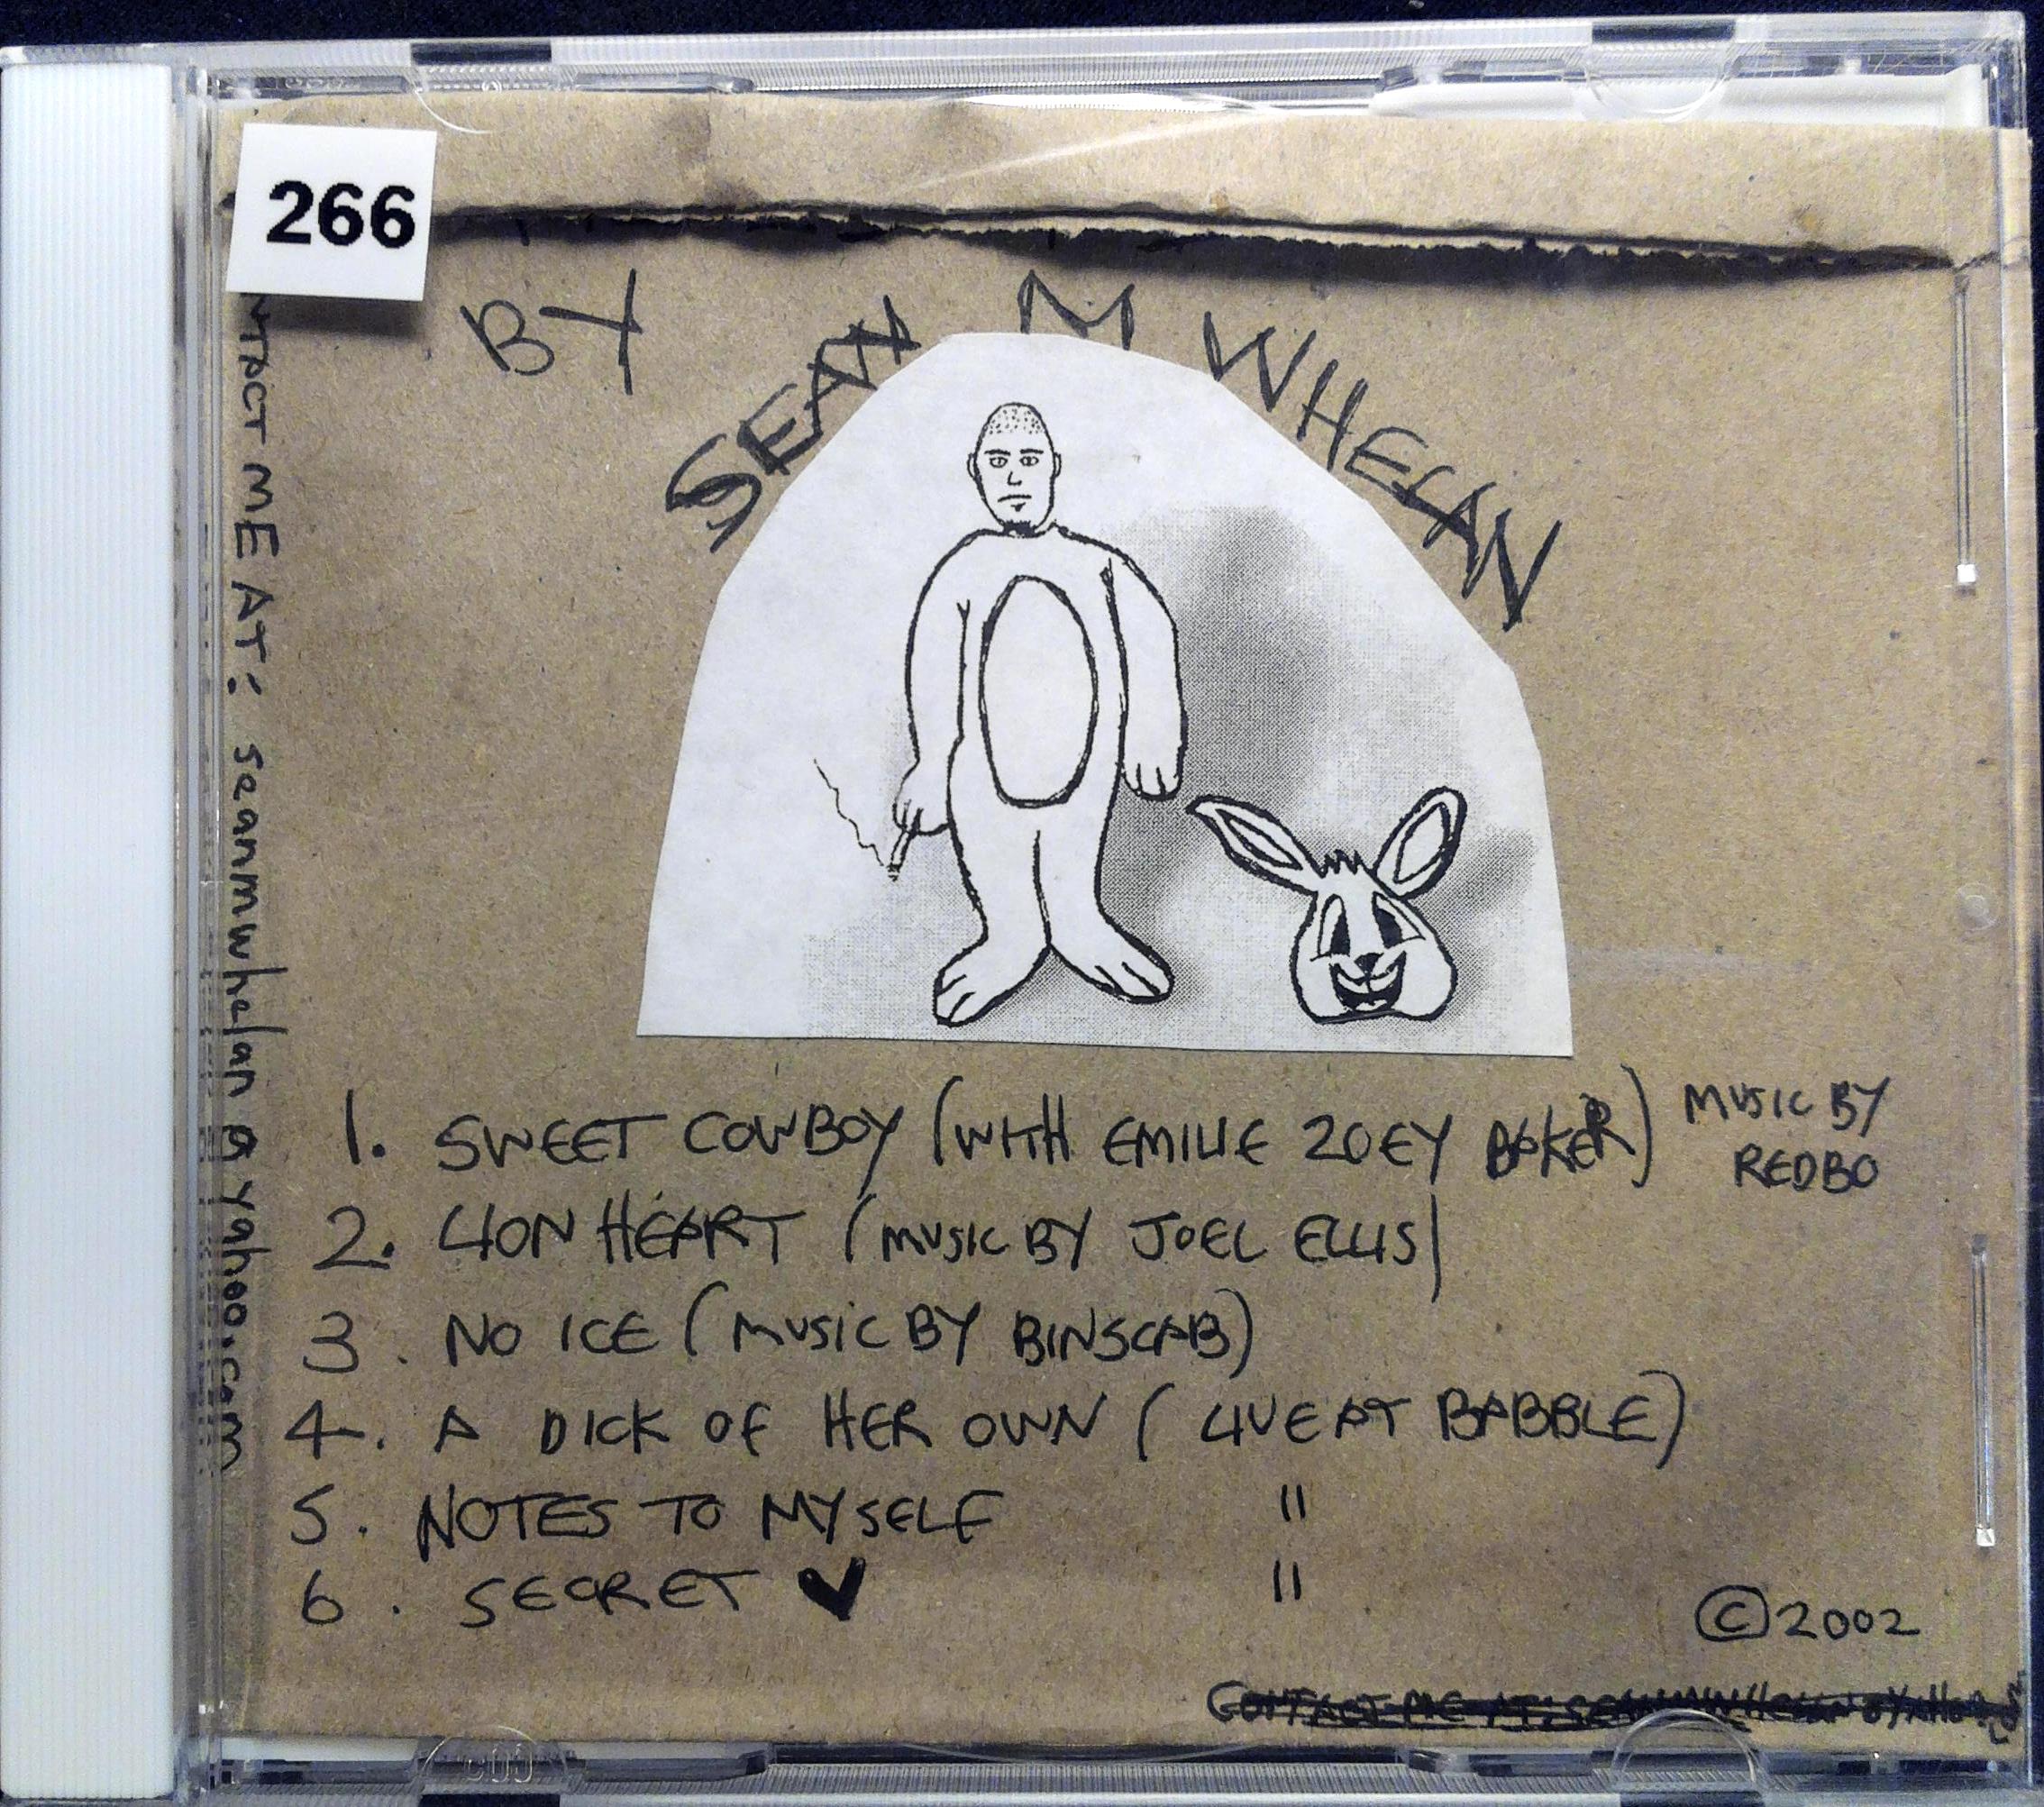 266
BY SEAN M WHELAN
NTACT ME AT: seanmwhelan@yahoo.com
1. SWEET COWBOY (WITH EMILIE ZOEY BAKER) MUSIC BY
REDBO
2. LION HEART (MUSIC BY JOEL ELLIS)
3. NO ICE (MUSIC BY BINSCAB)
4. A DICK OF HER OWN (LIVE AT BABBLE)
5. NOTES TO MYSELF "
6. SECRET ♥ "
©2002
CONTACT ME AT: